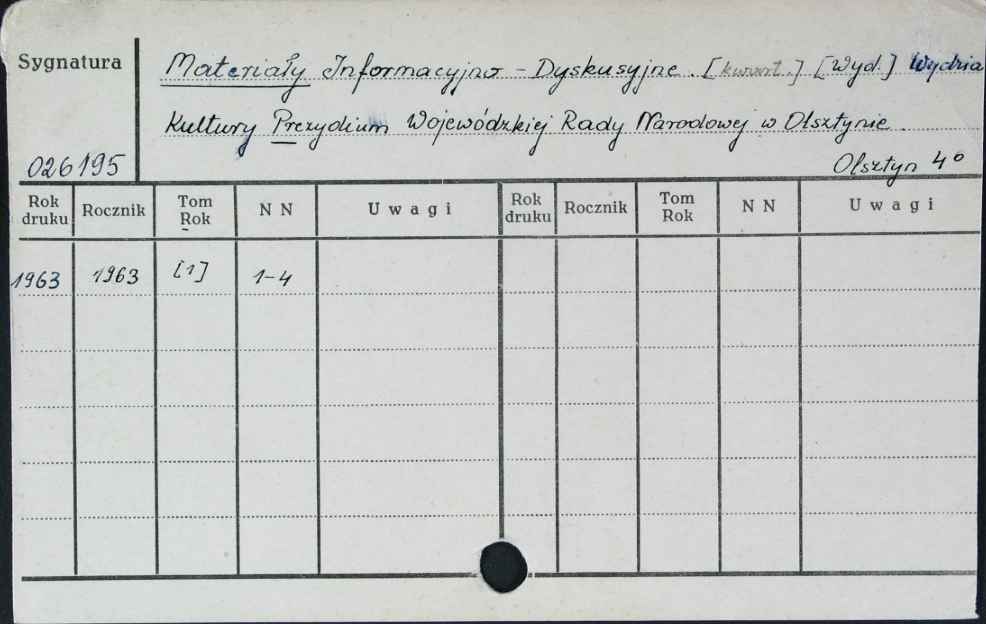 Sygnatura
Materiały Informacyjno - Dyskusyjne. [kwart.] [Wyd.] Wydzia
Kultury Prezydium Wojewódzkiej Rady Narodowej w Olsztynie.
026195
Olsztyn 4°
Rok druku Rocznik Tom Rok N N Uwagi Rok druku Rocznik Tom Rok N N Uwagi
1963 1963 [1] 1-4